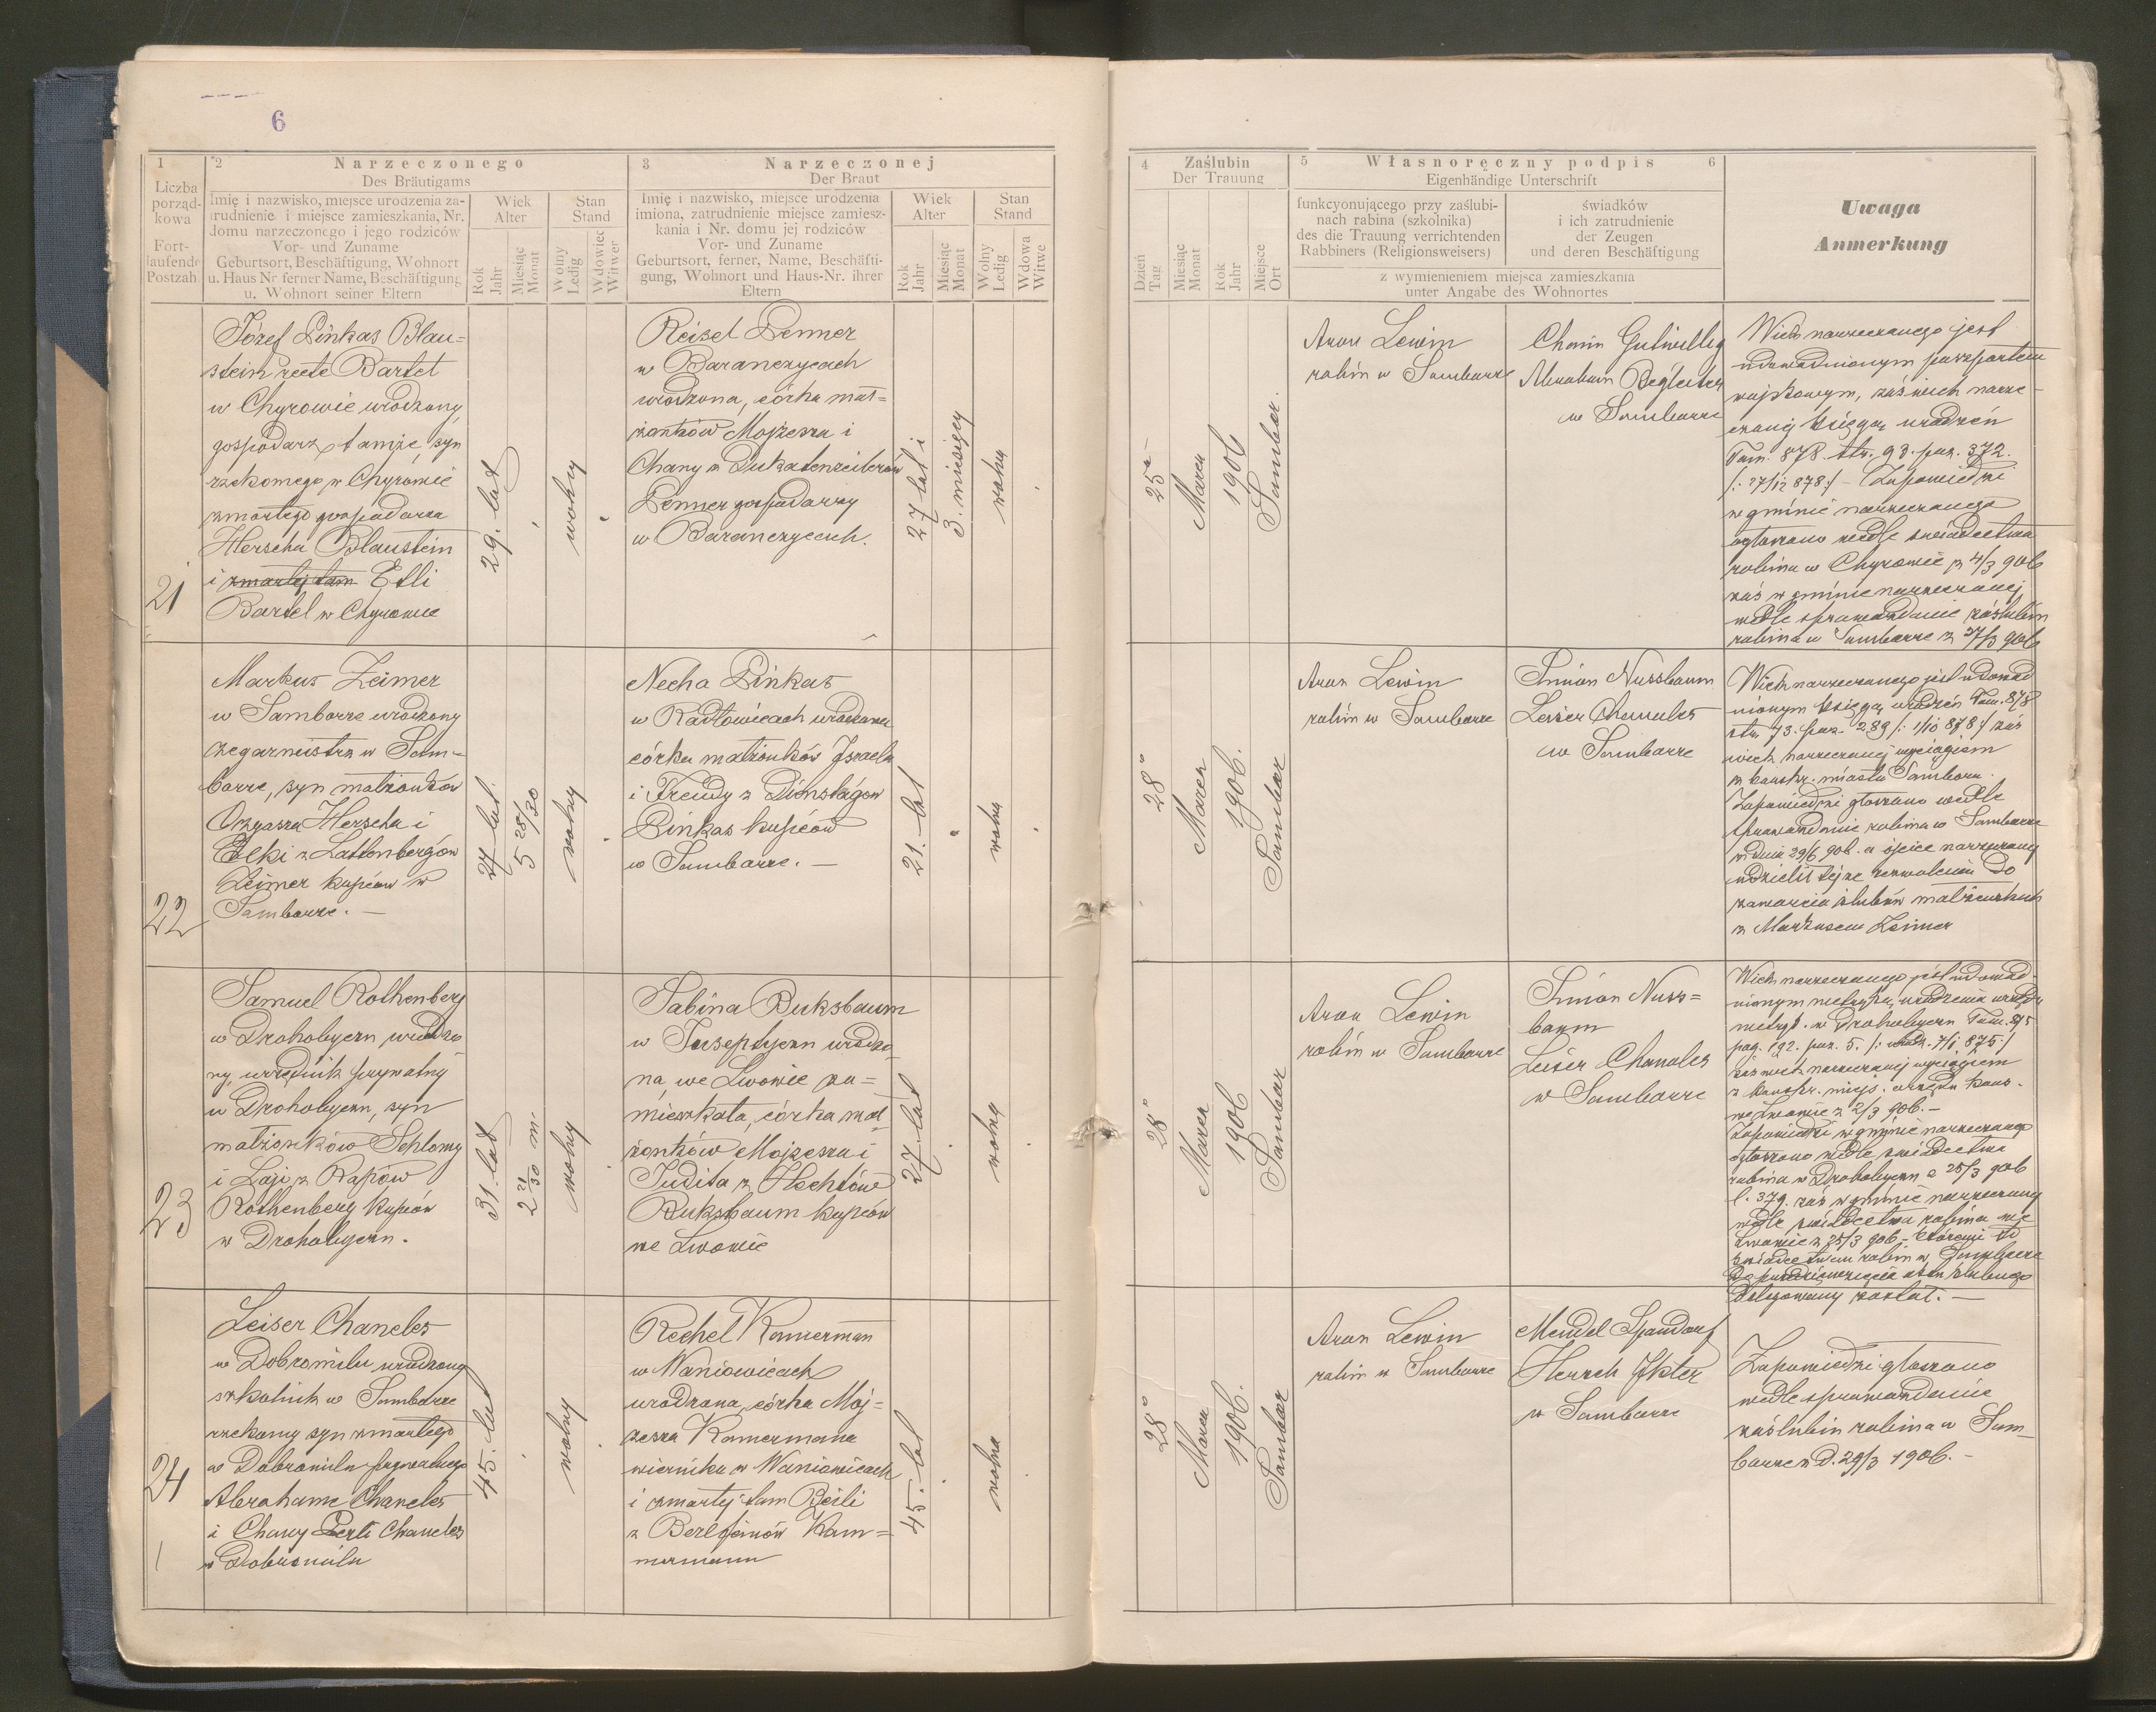 6
1
Liczba
porząd-
kowa
Fort-
laufende
Postzah
2 Narzeczonego
Des Bräutigams
Imię i nazwisko, miejsce urodzenia za-
trudnienie i miejsce zamieszkania, Nr.
domu narzeczonego i jego rodziców
Vor- und Zuname
Geburtsort, Beschäftigung, Wohnort
u. Haus Nr ferner Name, Beschäftigung
u. Wohnort seiner Eltern
Wiek
Alter
Rok
Jahr
Miesiąc
Monat
Stan
Stand
Wolny
Ledig
Wdowiec
Witwer
3 Narzeczonej
Der Braut
Imię i nazwisko, miejsce urodzenia
imiona, zatrudnienie miejsce zamiesz-
kania i Nr. domu jej rodziców
Vor- und Zuname
Geburtsort, ferner, Name, Beschäfti-
gung, Wohnort und Haus-Nr. ihrer
Eltern
Wiek
Alter
Rok
Jahr
Miesiąc
Monat
Stan
Stand
Wolny
Ledig
Wdowa
Witwe
4 Zaślubin
Der Trauung
Dzień
Tag
Miesiąc
Monat
Rok
Jahr
Miejsce
Ort
5 Własnoręczny podpis 6
Eigenhändige Unterschrift
funkcyonującego przy zaślubi-
nach rabina (szkolnika)
des die Trauung verrichtenden
Rabbiners (Religionsweisers)
świadków
i ich zatrudnienie
der Zeugen
und deren Beschäftigung
z wymienieniem miejsca zamieszkania
unter Angabe des Wohnortes
Uwaga
Anmerkung
21
Józef Pinkas Blau=
stein recte Bartel
w Chyrowie urodzony,
gospodarz tamże, syn
rzekomego w Chyrowie
zmarłego gospodarza
Herscha Blaustein
i zmarłej tam Etli
Bartel w Chyrowie
29. lat
wolny
Reisel Penner
w Baranczycach
urodzona, córka mał=
żonków Mojżesza i
Chany z Dukatenzeilerów
Penner gospodarzy
w Baranczycach.
27 lat i
3. miesięcy
wolna
25
Marca
1906
Sambor.
Aron Lewin
rabin w Samborze
Chaim Gutwillig
Abraham Begleiter
w Samborze
Wiek narzeczonego jest
udowodnionym paszportem
wojskowym, zaś wiek narze-
czonej księgą urodzeń
Tom. 878. str. 93. poz. 372.
/: 27/12 878:/ – Zapowiedzi
w gminie narzeczonego
ogłoszono wedle świadectwa
rabina w Chyrowie z 4/3 906
zaś w gminie narzeczonej
wedle sprawozdania zaślubin
rabina w Samborze z 27/3 906
22
Markus Zeimer
w Samborze urodzony
zegarmistrz w Sam-
borze, syn małżonków
Ozyasza Herscha i
Elki z Lattenbergów
Zeimer kupców w
Samborze. –
27 lat.
5 28/30
wolny
Necha Pinkas
w Radłowicach urodzona
córka małżonków Izraela
i Freudy z Dienstagów
Pinkas kupców
w Samborze. –
21. lat
wolna
28
Marca
1906.
Sambor
Aron Lewin
rabin w Samborze
Simon Nussbaum
Leiser Chanales
w Samborze
Wiek narzeczonego jest udowod
nionym księgą urodzeń Tom. 878
str. 73. poz. 289 /: 1/10 878:/ zaś
wiek narzeczonej wyciągiem
z konskr. miasta Sambora.
Zapowiedzi głoszono wedle
sprawozdania rabina w Samborze
z dnia 29/6 906. a ojciec narzeczonej
udzielił tejże zezwolenia do
zawarcia ślubów małżeńskich
z Markusem Zeimer
23
Samuel Rothenberg
w Drohobyczu urodzo
ny, urzędnik prywatny
w Drohobyczu, syn
małżonków Schlomy
i Laji z Rapów
Rothenberg kupców
w Drohobyczu.
31. lat
2 21/30 m.
wolny
Sabina Buksbaum
w Jurseptyczu urodzo
na, we Lwowie za=
mieszkała, córka mał
żonków Mojżesza i
Judita z Hechtów
Buksbaum kupców
we Lwowie
27. lat
wolna
28
Marca
1906
Sambor
Aron Lewin
rabin w Samborze
Simon Nuss=
baum
Leiser Chanales
w Samborze
Wiek narzeczonego jest udowod-
nionym metryką urodzenia urzędu
metryk. w Drohobyczu Tom. 875
pag. 192. poz. 5. /: urodz. 7/1 875:/
zaś wiek narzeczonej wyciągiem
z konskr. miejs. urzędu kons.
we Lwowie z 2/3 906. –
Zapowiedzi w gminie narzeczonego
ogłoszono wedle świadectwa
rabina w Drohobyczu z 25/3 906
l. 379, zaś w gminie narzeczonej
wedle świadectwa rabina we
Lwowie z 25/3 906 – którem to
świadectwem rabin w Samborze
do przedsięwzięcia aktu ślubnego
delegowany został. –
24
Leiser Chaneles
w Dobromilu urodzony
szkolnik w Samborze
rzekomy syn zmarłego
w Dobromilu prywatnego
Abrahama Chaneles
i Chany Perli Chaneles
w Dobromilu
45. lat
wolny
Rechel Kamerman
w Waniowicach
urodzona, córka Moj=
żesza Kamermana
wiernika w Waniowicach
i zmarłej tam Beili
z Berlfeinów Kam=
mermann
45. lat
wolna
28
Marca
1906.
Sambor
Aron Lewin
rabin w Samborze
Mendel Spandorf
Hersch Ikter
w Samborze
Zapowiedzi głoszono
wedle sprawozdania
zaślubin rabina w Sam-
borze z d. 29/3 1906. –